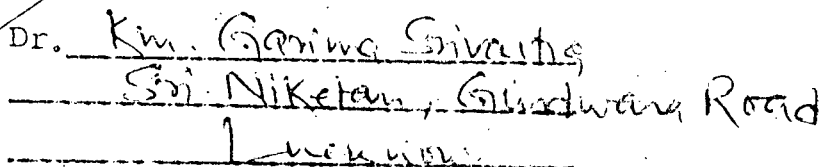 Dr. Km. Garima Srivastava
Sri Niketan, Gurdwara Road
Lucknow